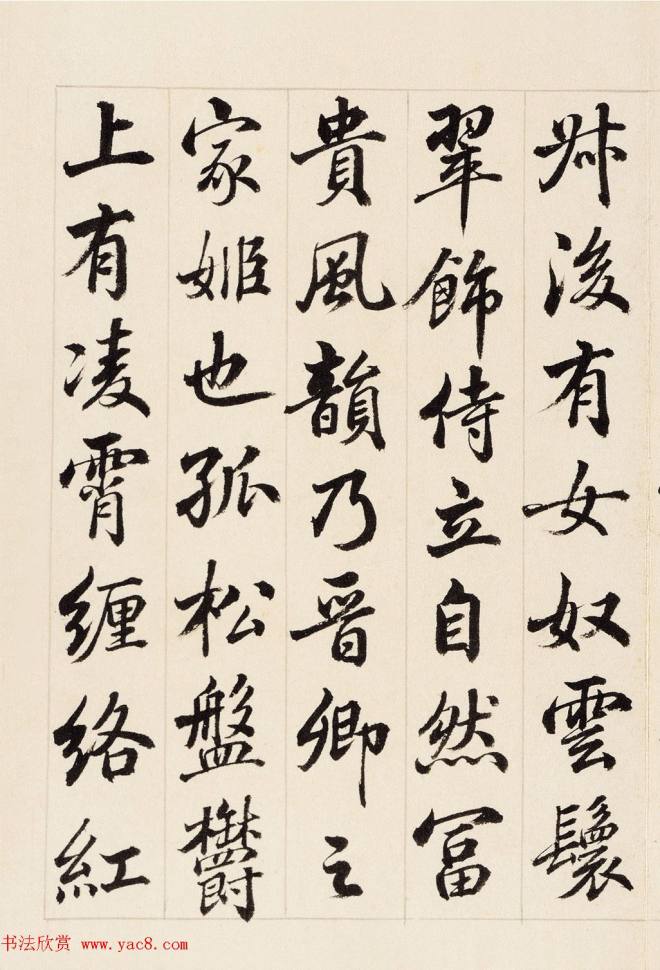 尗後有女奴雲鬟
翠飾侍立自然冨
貴風韻乃晉卿之
家姬也孤松盤欝
上有凌霄纏絡紅
书法欣赏 www.yac8.com